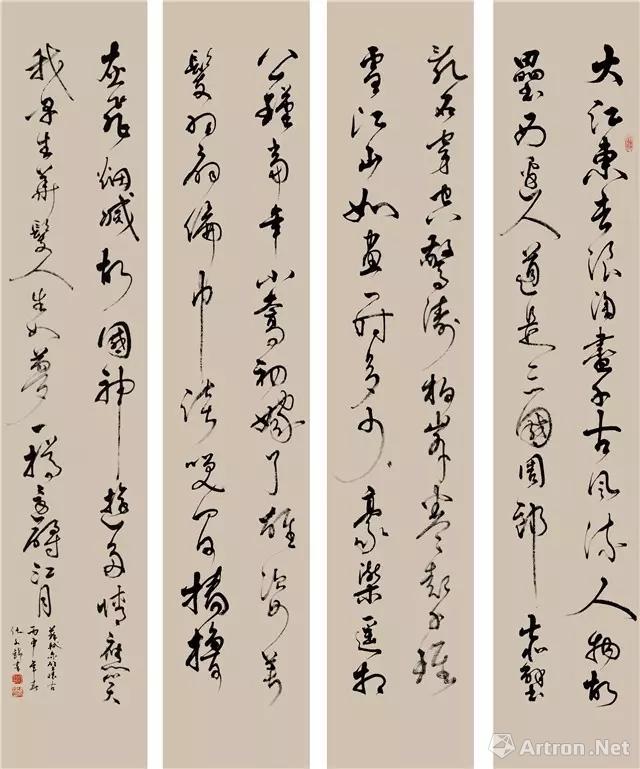 大江東去浪淘盡千古風流人物故
壘西邊人道是三國周郎赤壁
亂石穿空驚濤拍岸卷起千堆
雪江山如畫一時多少豪傑遙想
公瑾當年小喬初嫁了雄姿英
發羽扇綸巾談笑間檣櫓
灰飛烟滅故國神遊多情應笑
我早生華髮人生如夢一樽還酹江月
蘇軾赤壁懷古
丙申年春
Artron.Net